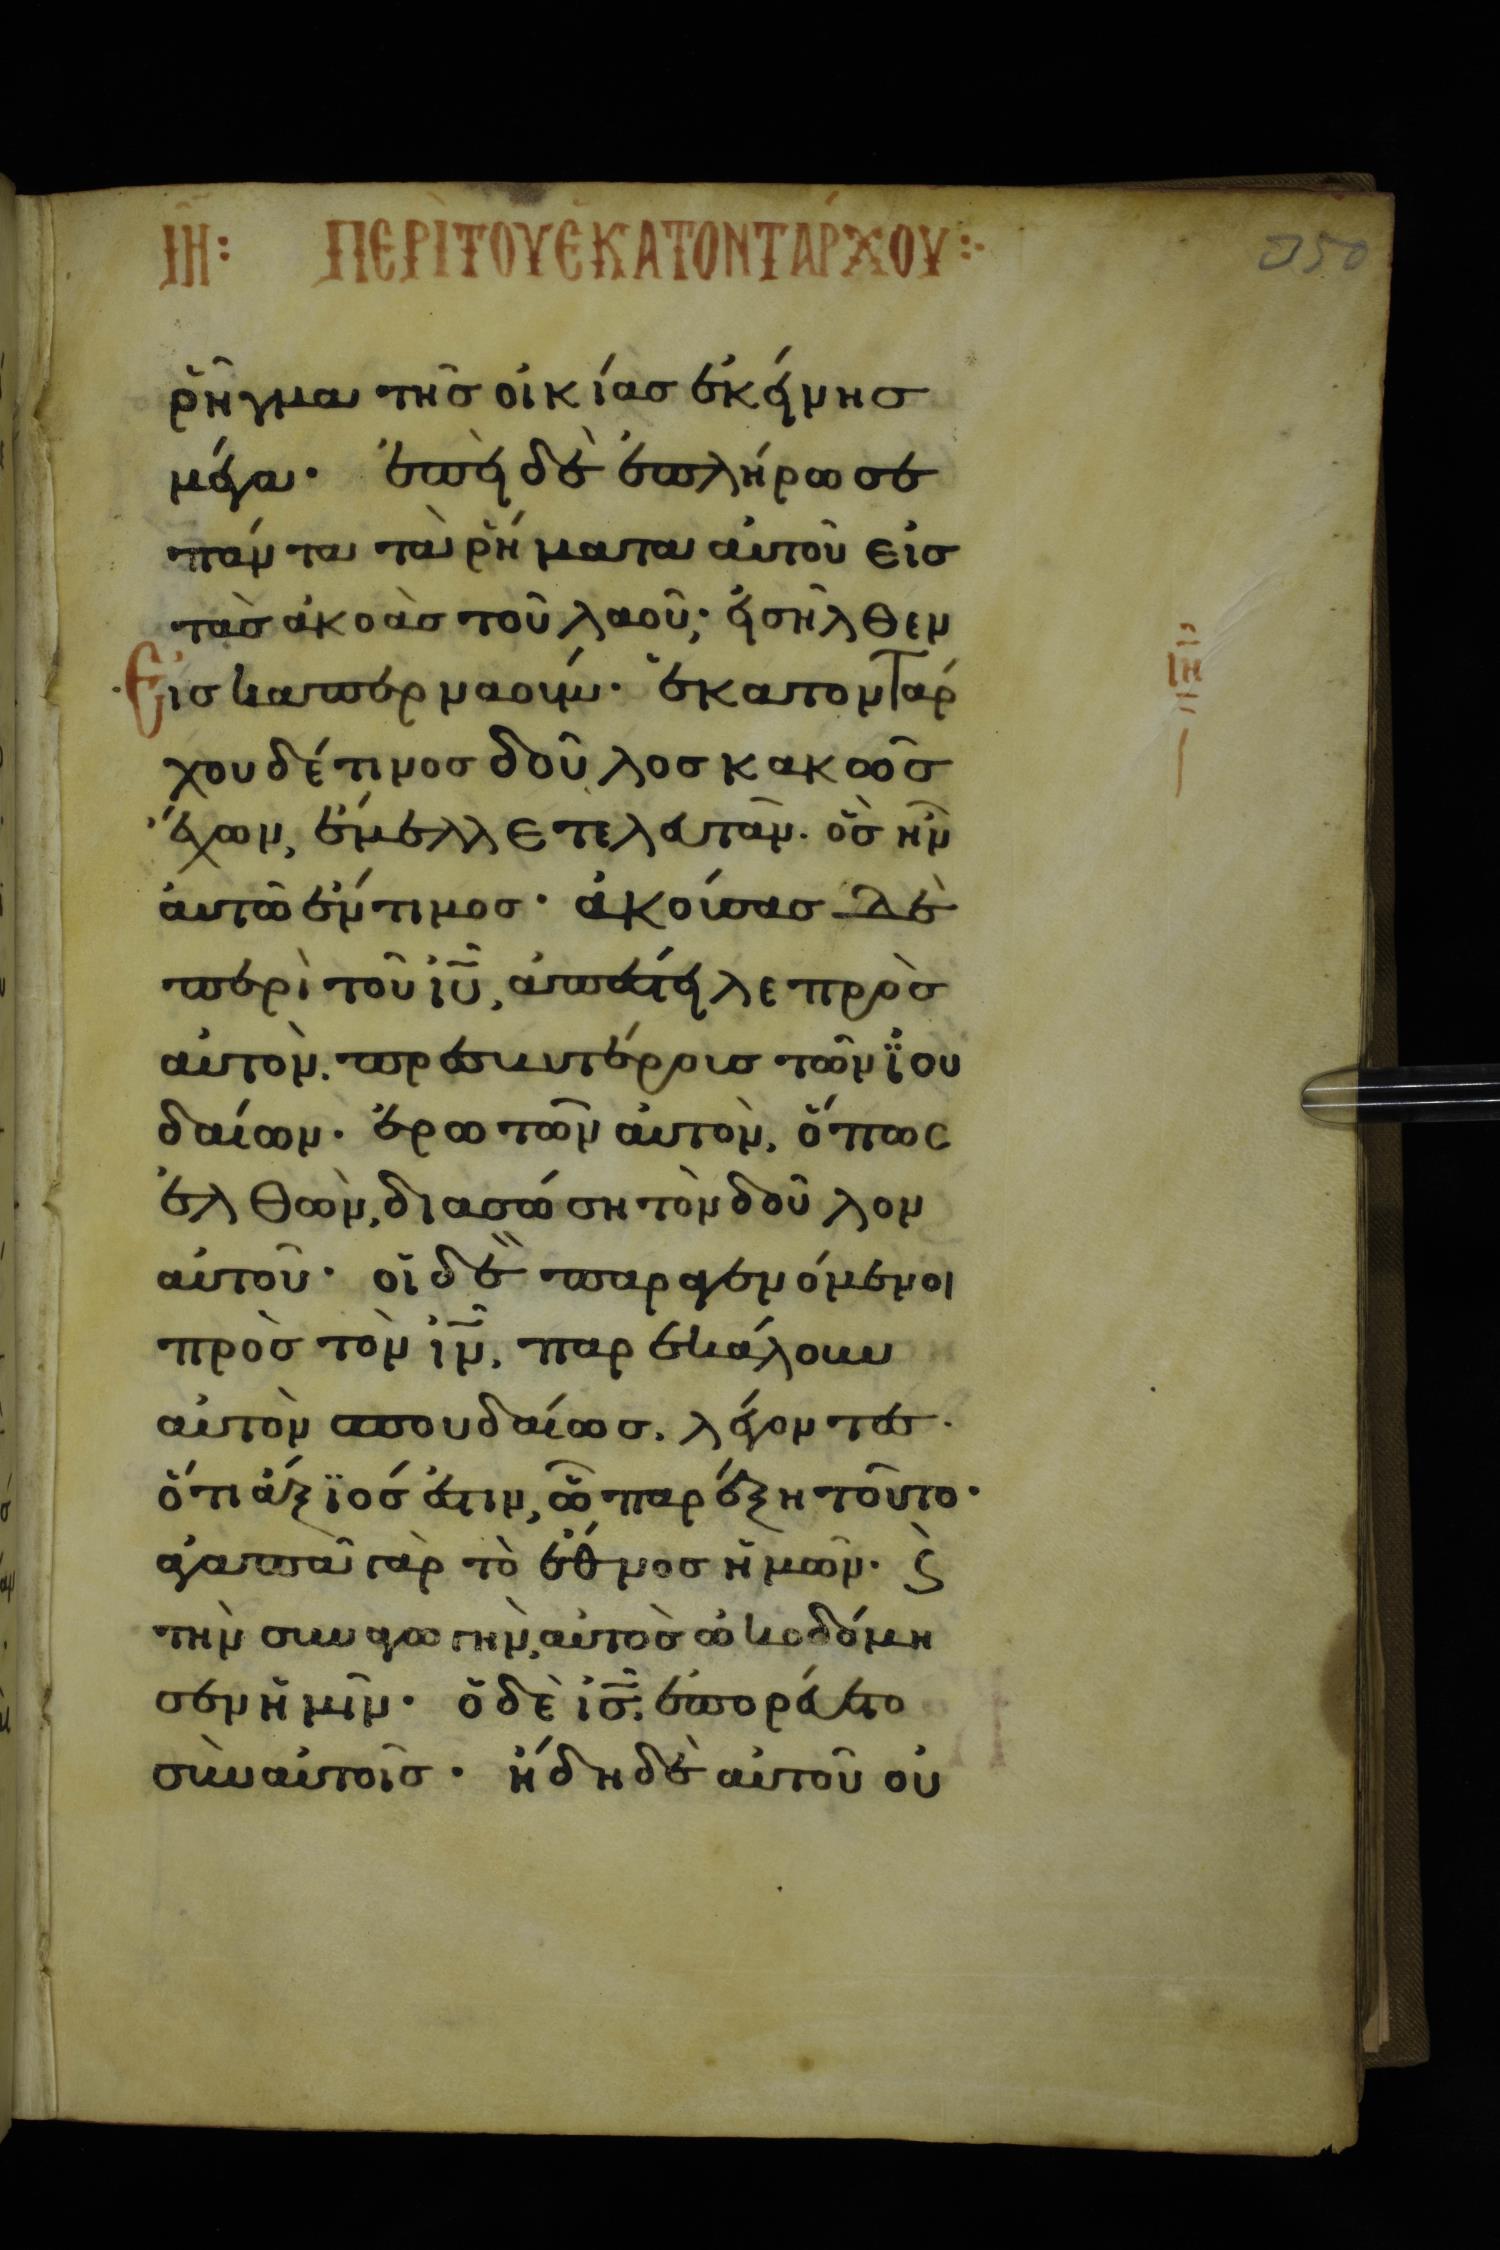 ΙΗ: ΠΕΡῚ ΤΟΥ ἙΚΑΤΟΝΤΆΡΧΟΥ:·
ῥῆγμα τῆσ οἰκίασ ἐκείνησ
μέγα· ἐπεὶ δὲ ἐπλήρωσε
πάντα τὰ ῥήματα αὐτοῦ εἰσ
τὰσ ἀκοὰσ τοῦ λαοῦ; εἰσῆλθεν
Εἰσ καπερναούμ· ἑκατονταρ
χου δέ τινοσ δοῦλοσ κακῶσ
ἔχων, ἔμελλε τελευτᾶν. ὃσ ἦν
αὐτῶ ἔντιμοσ· ἀκούσασ δὲ
περὶ τοῦ ἰῦ, ἀπέστειλε πρὸσ
αὐτὸν. πρεσβυτέρουσ τῶν ἰου
δαίων· ἐρωτῶν αὐτὸν, ὅπωσ
ἐλθὼν, διασώση τὸν δοῦλον
αὐτοῦ· οἱ δὲ παραγενόμενοι
πρὸσ τὸν ἰν, παρεκάλουν
αὐτὸν σπουδαίωσ. λέγοντεσ.
ὅτι ἄξϊόσ ἐστιν, ὧ παρέξη τοῦτο·
ἀγαπᾶ γὰρ τὸ ἔθνοσ ἡμῶν. ϛ
τὴν συναγωγὴν, αὐτὸσ ὠκοδόμη
σεν ἡμῖν· ὁ δὲ ἰσ. ἐπορεύετο
σὺν αὐτοῖσ· ἤδη δὲ αὐτοῦ οὐ